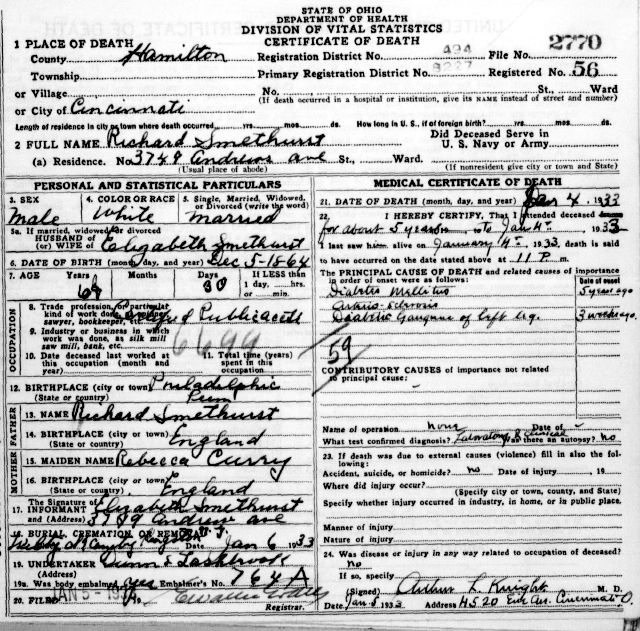 STATE OF OHIO
DEPARTMENT OF HEALTH
DIVISION OF VITAL STATISTICS
CERTIFICATE OF DEATH
1 PLACE OF DEATH
County Hamilton Registration District No. 494 File No. 2770
Township Primary Registration District No. Registered No. 56
or Village No. St., Ward
(If death occurred in a hospital or institution, give its NAME instead of street and number)
or City of Cincinnati
Length of residence in city or town where death occurred yrs. mos. ds. How long in U. S., if of foreign birth? yrs. mos. ds.
2 FULL NAME Richard Smethurst Did Deceased Serve in U. S. Navy or Army
(a) Residence. No. 3789 Andrews Ave St., Ward.
(Usual place of abode) (If nonresident give city or town and State)
PERSONAL AND STATISTICAL PARTICULARS
3. SEX Male
4. COLOR OR RACE White
5. Single, Married, Widowed, or Divorced (write the word) married
5a. If married, widowed, or divorced
HUSBAND of
(or) WIFE of Elizabeth Smethurst
6. DATE OF BIRTH (month, day, and year) Dec 5-1864
7. AGE Years 68 Months Days 30 If LESS than
1 day, hrs.
or min.
OCCUPATION
8. Trade, profession, or particular
kind of work done,
sawyer, bookkeeper, etc.
9. Industry or business in which
work was done, as silk mill
saw mill, bank, etc.
10. Date deceased last worked at
this occupation (month and
year)
11. Total time (years)
spent in this
occupation
12. BIRTHPLACE (city or town) Philadelphia
(State or country) Penn
FATHER
13. NAME Richard Smethurst
14. BIRTHPLACE (city or town) England
(State or country)
MOTHER
15. MAIDEN NAME Rebecca Curry
16. BIRTHPLACE (city or town)
(State or country) England
The Signature of
17. INFORMANT Elizabeth Smethurst
and (Address) 3789 Andrew Ave
18. BURIAL, CREMATION, OR REMOVAL
Date Jan 6 1933
19. UNDERTAKER
(Address)
19a. Was body embalmed yes Embalmer's No. 764A
20. FILED JAN 5 - 19
Registrar.
MEDICAL CERTIFICATE OF DEATH
21. DATE OF DEATH (month, day, and year) Jan 4, 1933
22. I HEREBY CERTIFY, That I attended deceased from
for about 5 years to Jan 4th, 1933
I last saw him alive on January 4th, 1933, death is said
to have occurred on the date stated above at 11 P. m.
The PRINCIPAL CAUSE OF DEATH and related causes of importance
in order of onset were as follows: Date of onset
Diabetes Mellitus 5 years ago
Arterio-sclerosis
Diabetic Gangrene of left leg. 3 weeks ago.
59
CONTRIBUTORY CAUSES of importance not related
to principal cause:
Name of operation none Date of
What test confirmed diagnosis? Laboratory & clinical Was there an autopsy? no
23. If death was due to external causes (violence) fill in also the following:
Accident, suicide, or homicide? no Date of injury , 19
Where did injury occur?
(Specify city or town, county, and State)
Specify whether injury occurred in industry, in home, or in public place.
Manner of injury
Nature of injury
24. Was disease or injury in any way related to occupation of deceased?
no
If so, specify
(Signed) Arthur L Knight M. D.
Date Jan 5 1933 Address 4520 Eve Ave. Cincinnati O.